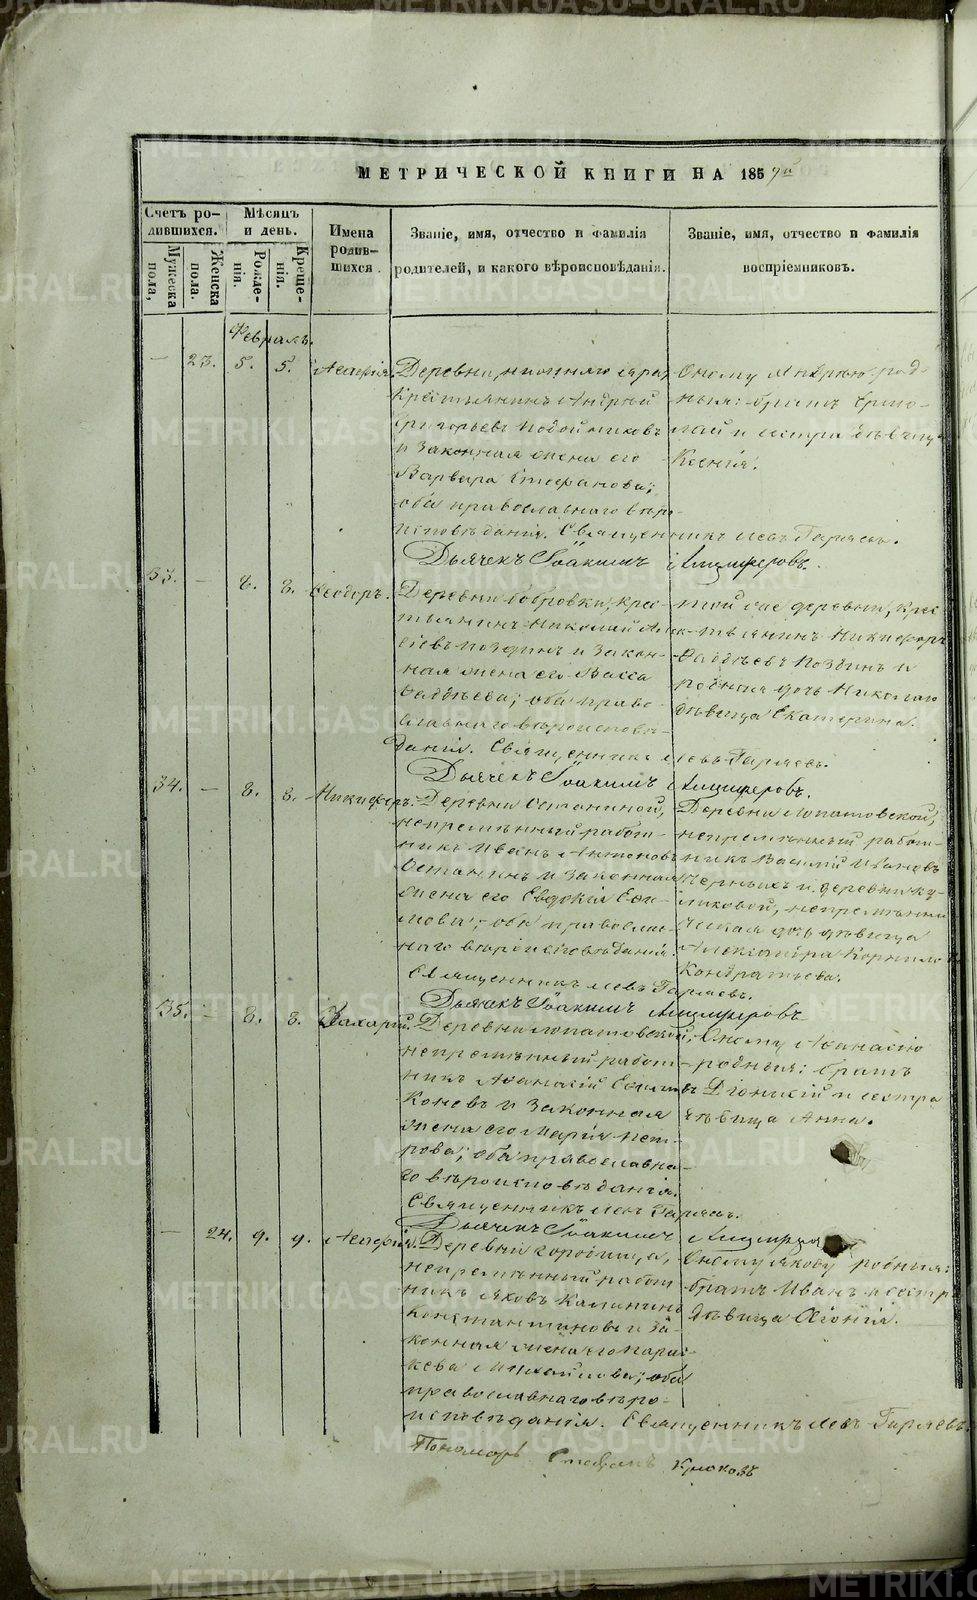 МЕТРИЧЕСКОЙ КНИГИ НА 185
Счетъ ро-
дившихся.
Мужеска
пола,
Женска
пола.
Мѣсяцъ
и день.
Рожде-
нія.
Креще-
нія.
Имена
родив-
шихся.
Званіе, имя, отчество и фамилія
родителей, и какого вѣроисповѣданія.
Званіе, имя, отчество и фамилія
воспріемниковъ.
Февраль.
— 23. 5. 5.
Деревни
Крестьянинъ Андрей
Григорьевъ
и законная жена его
Варвара Стефанова;
оба православнаго вѣро-
исповѣданія. Священникъ Левъ Гаряевъ.
Дьячекъ Іоакимъ Анциферовъ.
Оному Андрею род-
ныя: братъ Ермо-
лай и сестра дѣвица
Ксенія.
33. — 8. 8. Ѳеодоръ.
Деревни Бобровки, крес-
тьянинъ Николай
и закон-
ная жена его Васса
Ѳаддѣева; оба право-
славнаго вѣроисповѣ-
данія. Священникъ Левъ Гаряевъ.
Дьячекъ Іоакимъ Анциферовъ.
той же деревни, крес-
тьянинъ Никифоръ
Ѳаддѣевъ и
родная дочь Николаю
дѣвица Екатерина.
34. — 8. 8. Никифоръ.
Деревни Останиной,
непремѣнный работ-
никъ Иванъ Антоновъ
Останинъ и законная
жена его Евдокія Ефи-
мова; оба православ-
наго вѣроисповѣданія.
Священникъ Левъ Гаряевъ.
Дьячекъ Іоакимъ Анциферовъ
Деревни Липатовской,
непремѣнный работ-
никъ Василій Ивановъ
Черныхъ и деревни Ку-
ликовой, непремѣнни
дочь дѣвица
Александра Корнило
Кондратьева.
35. — 8. 8. Захарій.
Деревни Липатовской,
непремѣнный работ-
никъ Аѳанасій Ефимовъ
Коневъ и законная
жена его Марія Пет-
рова; оба православна-
го вѣроисповѣданія.
Священникъ Левъ Гаряевъ.
Дьячекъ Іоакимъ Анциферовъ
Оному Аѳанасію
родныя: братъ
Діонисій и сестра
дѣвица Анна.
— 24. 9. 9.
Деревни Городища,
непремѣнный работ
никъ Яковъ Калинино
Константиновъ и за-
конная жена его Парас-
кева Михайлова; оба
православнаго вѣро-
исповѣданія. Священникъ Левъ Гаряевъ.
Пономарь Стефанъ Крюковъ
Оному Якову родныя:
братъ Иванъ и сестра
дѣвица Аѳонія.
METRIKI.GASO-URAL.RU